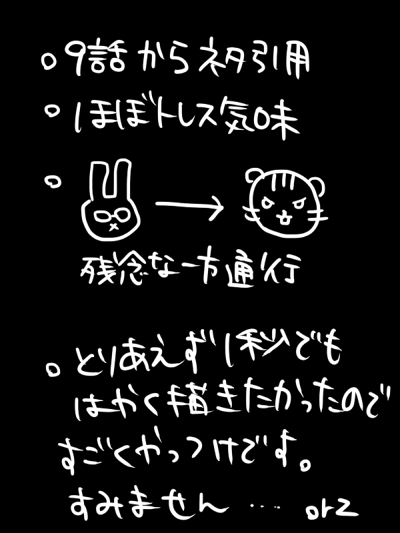 ○9話からネタ引用
○ほぼトレス気味
○
残念な一方通行
○とりあえず1秒でも
はやく描きたかったので
すごくやっつけです。
すみません…. orz